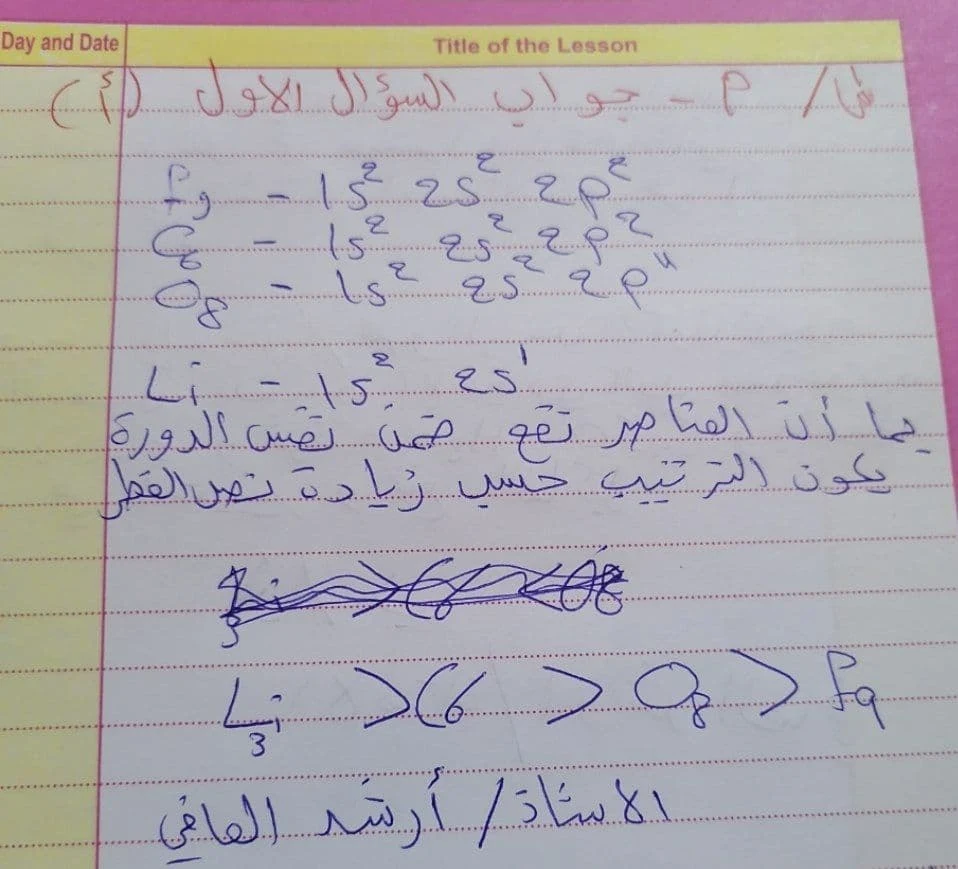 Day and Date
Title of the Lesson
م - جواب السؤال الاول (أ)
F9 - 1s² 2s² 2p²
C6 - 1s² 2s² 2p²
O8 - 1s² 2s² 2p⁴
Li - 1s² 2s¹
بما أن العناصر تقع ضمن نفس الدورة
يكون الترتيب حسب زيادة نصف القطر
Li3 > C6 > O8 > F9
الاستاذ / أرشد العافي